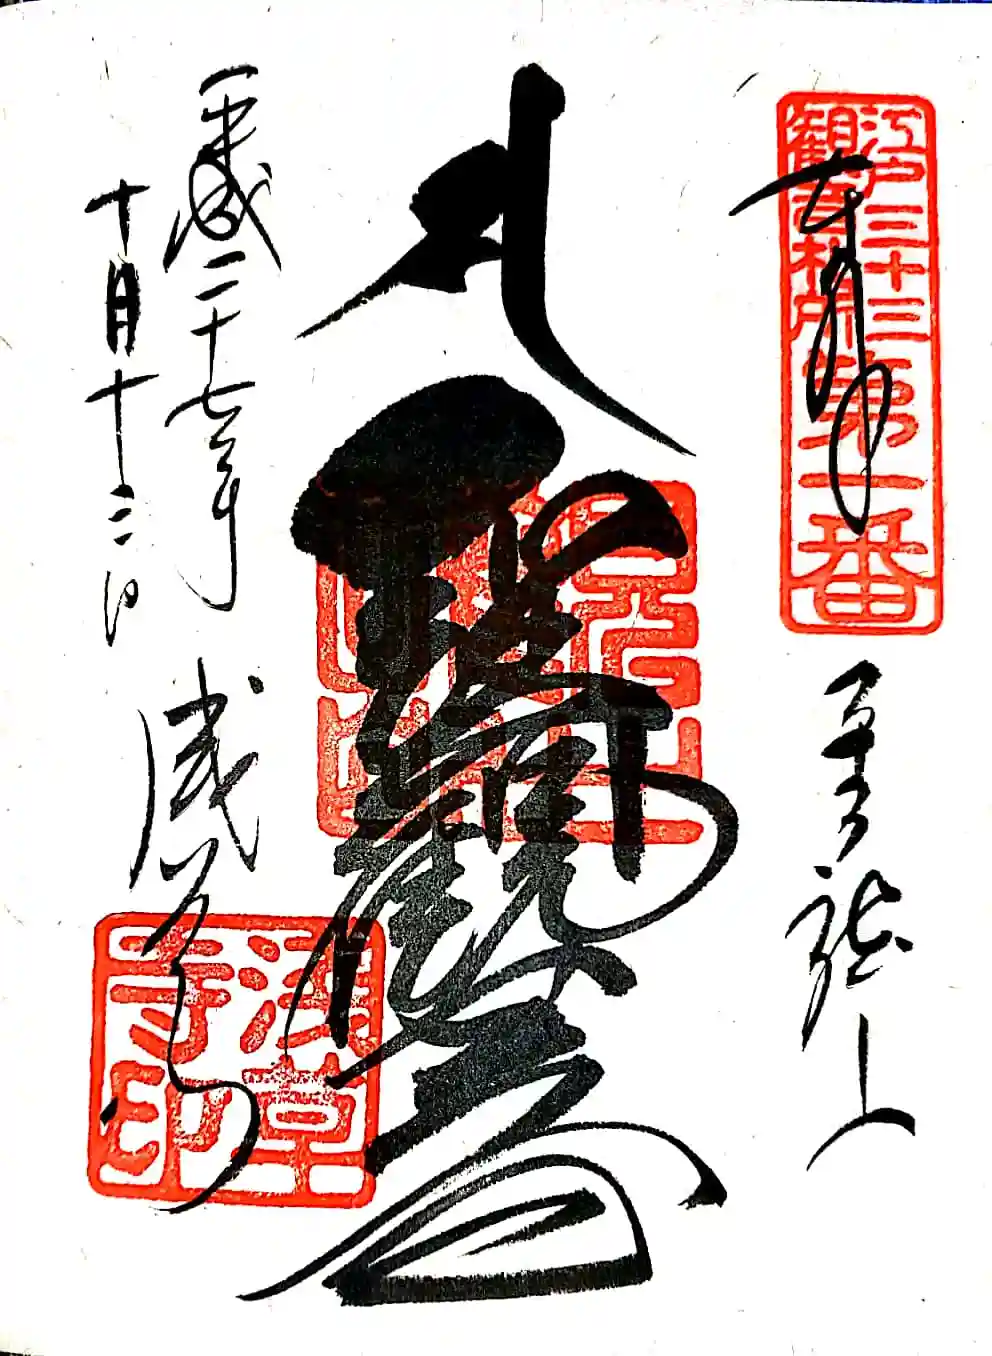 江戸三十三
観音札所
第一番
奉拝
龍山
聖觀音
平成二十七年
十月十
浅草寺
浅草
寺印